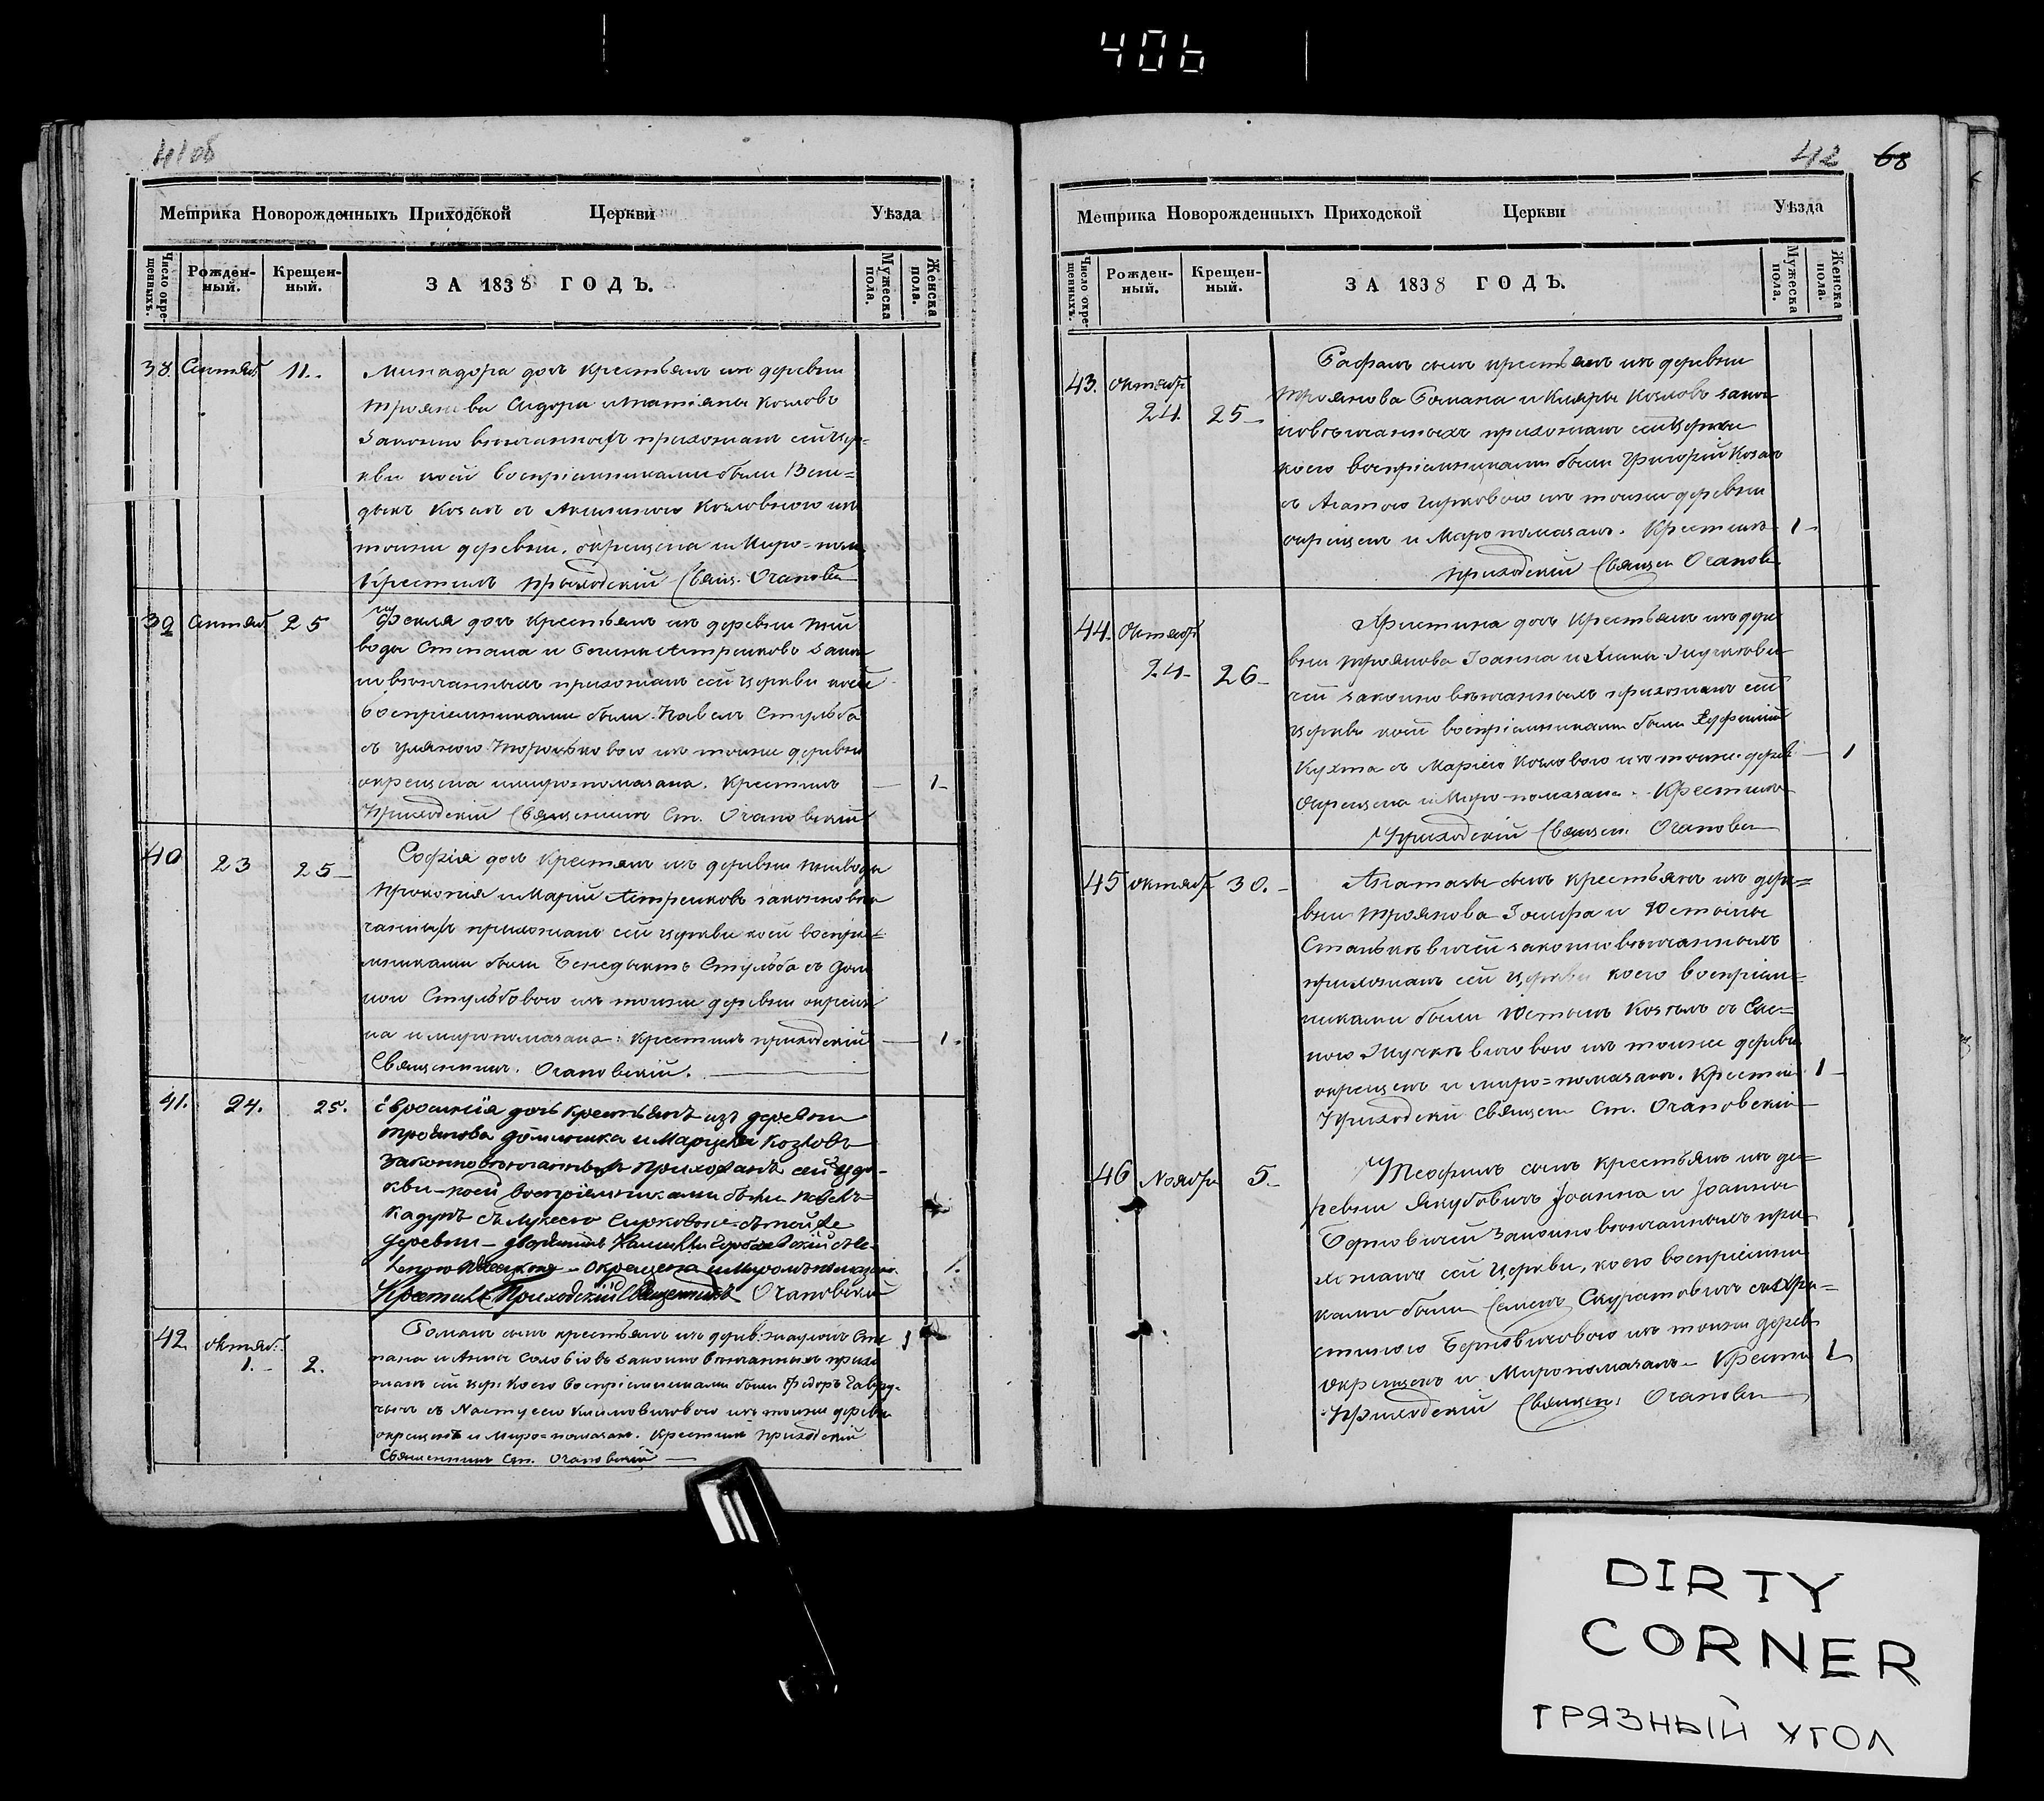 406
41 об
Метрика Новорожденныхъ Приходской Церкви Уѣзда
Число окре-
щенныхъ.
Рожден-
ный.
Крещен-
ный.
ЗА 1838 ГОДЪ.
Мужеска
пола.
Женска
пола.
38. Сентяб. 11.
Минадора дочь крестьянъ изъ деревни
Сидора и Татіяны Козловъ
Законно вѣнчанныхъ прихожанъ сей цер-
кви коей воспріемниками были Вене-
дыкъ Козелъ съ Козловною изъ
тоижъ деревни, окрещена и Миро-пом
Крестилъ Приходскій Свящ. Огановск
39 Сентяб. 25
Фекла дочь крестьянъ изъ деревни
воды Степана и Астрейковъ закон
но вѣнчанныхъ прихожанъ сей церкви коей
воспріемниками были Павелъ Стульба
съ изъ тоижъ деревни
окрещена и миро-помазана. Крестилъ 1
Приходскій Священникъ Ст. Огановскій
40 23 25
Софія дочь крестьянъ изъ деревни
Прокопія и Маріи Астрейковъ законно вѣн
чанныхъ прихожанъ сей церкви коей воспріе-
мниками были Бенедыктъ Стульба съ Дом
ною Стульбовою изъ тоижъ деревни окреще
на и миропомазана: крестилъ приходскій 1.
Священникъ. Огановскій.
41. 24. 25.
Евросинія дочь крестьянъ изъ деревни
Троянова Доминика и Козловъ
Законно вѣнчанныхъ прихожанъ сей цер-
кви - коей воспріемниками были Павелъ
Кадунъ съ съ той же
деревни -
окрещена и Миропомазана. 1.
Крестилъ Приходскій Священникъ Огановскій
42 октяб. 1. 2.
Романъ сынъ крестьянъ изъ дерев. Сте 1
пана и Анны Соловіовъ законно вѣнчанныхъ прихо
жанъ сей цер: коего воспріемниками были Федоръ
съ Настусею Климовичовою изъ тоижъ деревни
окрещенъ и Миро-помазанъ. Крестилъ Приходскій
Священникъ Ст. Огановскій
42 68
Метрика Новорожденныхъ Приходской Церкви Уѣзда
Число окре-
щенныхъ.
Рожден-
ный.
Крещен-
ный.
ЗА 1838 ГОДЪ.
Мужеска
пола.
Женска
пола.
43. октябр 24. 25
сынъ крестьянъ изъ деревни
Троянова Романа и Козловъ закон
но вѣнчанныхъ прихожанъ сей церкви
коего воспріемниками были Григорій Козелъ
съ Агатою изъ тоижъ деревни
окрещенъ и Миропомазанъ. Крестилъ 1
приходскій Священ Огановс
44. Октябр 24 26
Христина дочь крестьянъ изъ дере
вни Троянова Іоанна и Анны
чей законно вѣнчанныхъ прихожанъ сей
церкви коей воспріемниками были
Кухта съ Маріею Козловою изъ тоижъ дерев 1
Окрещена и Миро-помазана. Крестилъ
Приходскій Священ: Огановск
45 октябр 30.
сынъ крестьянъ изъ дере-
вни Троянова Іосифа и Юстыны
Станькевичей законно вѣнчанныхъ
прихожанъ сей церкви коего воспріем-
никами были Юстынъ Козелъ съ Еле-
ною изъ тоижъ деревни
окрещенъ и миро-помазанъ. Крести 1
Приходскій Священ Ст. Огановскій
46 Ноябр 5.
Теофилъ сынъ крестьянъ изъ де-
ревни Якубовичъ Іоанна и Іоанны
Законно вѣнчанныхъ при
хожанъ сей Церкви, коего воспріемни
ками были Семенъ Скуратовичъ съ Хри-
стиною изъ тоижъ дерев
окрещенъ и Миропомазанъ Крести 1
Приходскій Священ: Огановск
DIRTY
CORNER
ГРЯЗНЫЙ УГОЛ